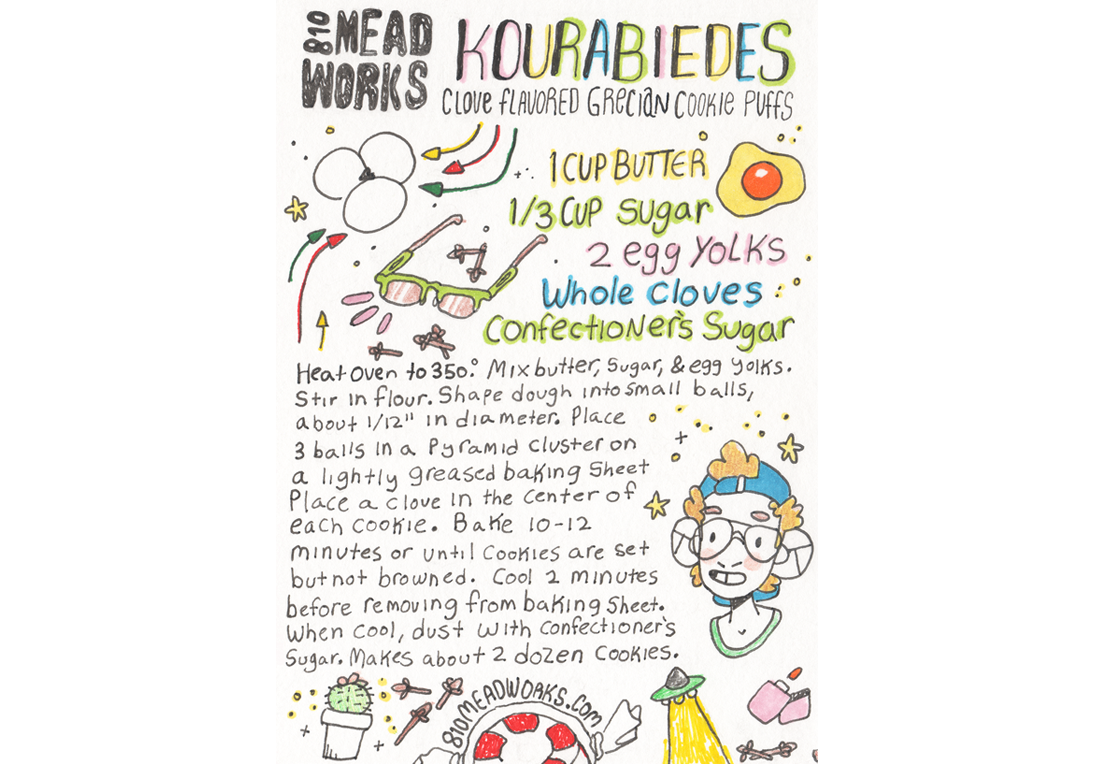 810 MEAD WORKS
KOURABIEDES
CLOVE FLAVORED GRECIAN COOKIE PUFFS
1 CUP BUTTER
1/3 CUP SUGAR
2 egg YOLKS
Whole Cloves
Confectioner's Sugar
Heat oven to 350.° Mix butter, Sugar, & egg yolks.
Stir in flour. Shape dough into small balls,
about 1/12" in diameter. Place
3 balls in a Pyramid Cluster on
a lightly greased baking Sheet
Place a clove in the center of
each cookie. Bake 10-12
minutes or until Cookies are set
but not browned. Cool 2 minutes
before removing from baking Sheet.
When Cool, dust with Confectioner's
Sugar. Makes about 2 dozen Cookies.
810MEADWORKS.COM